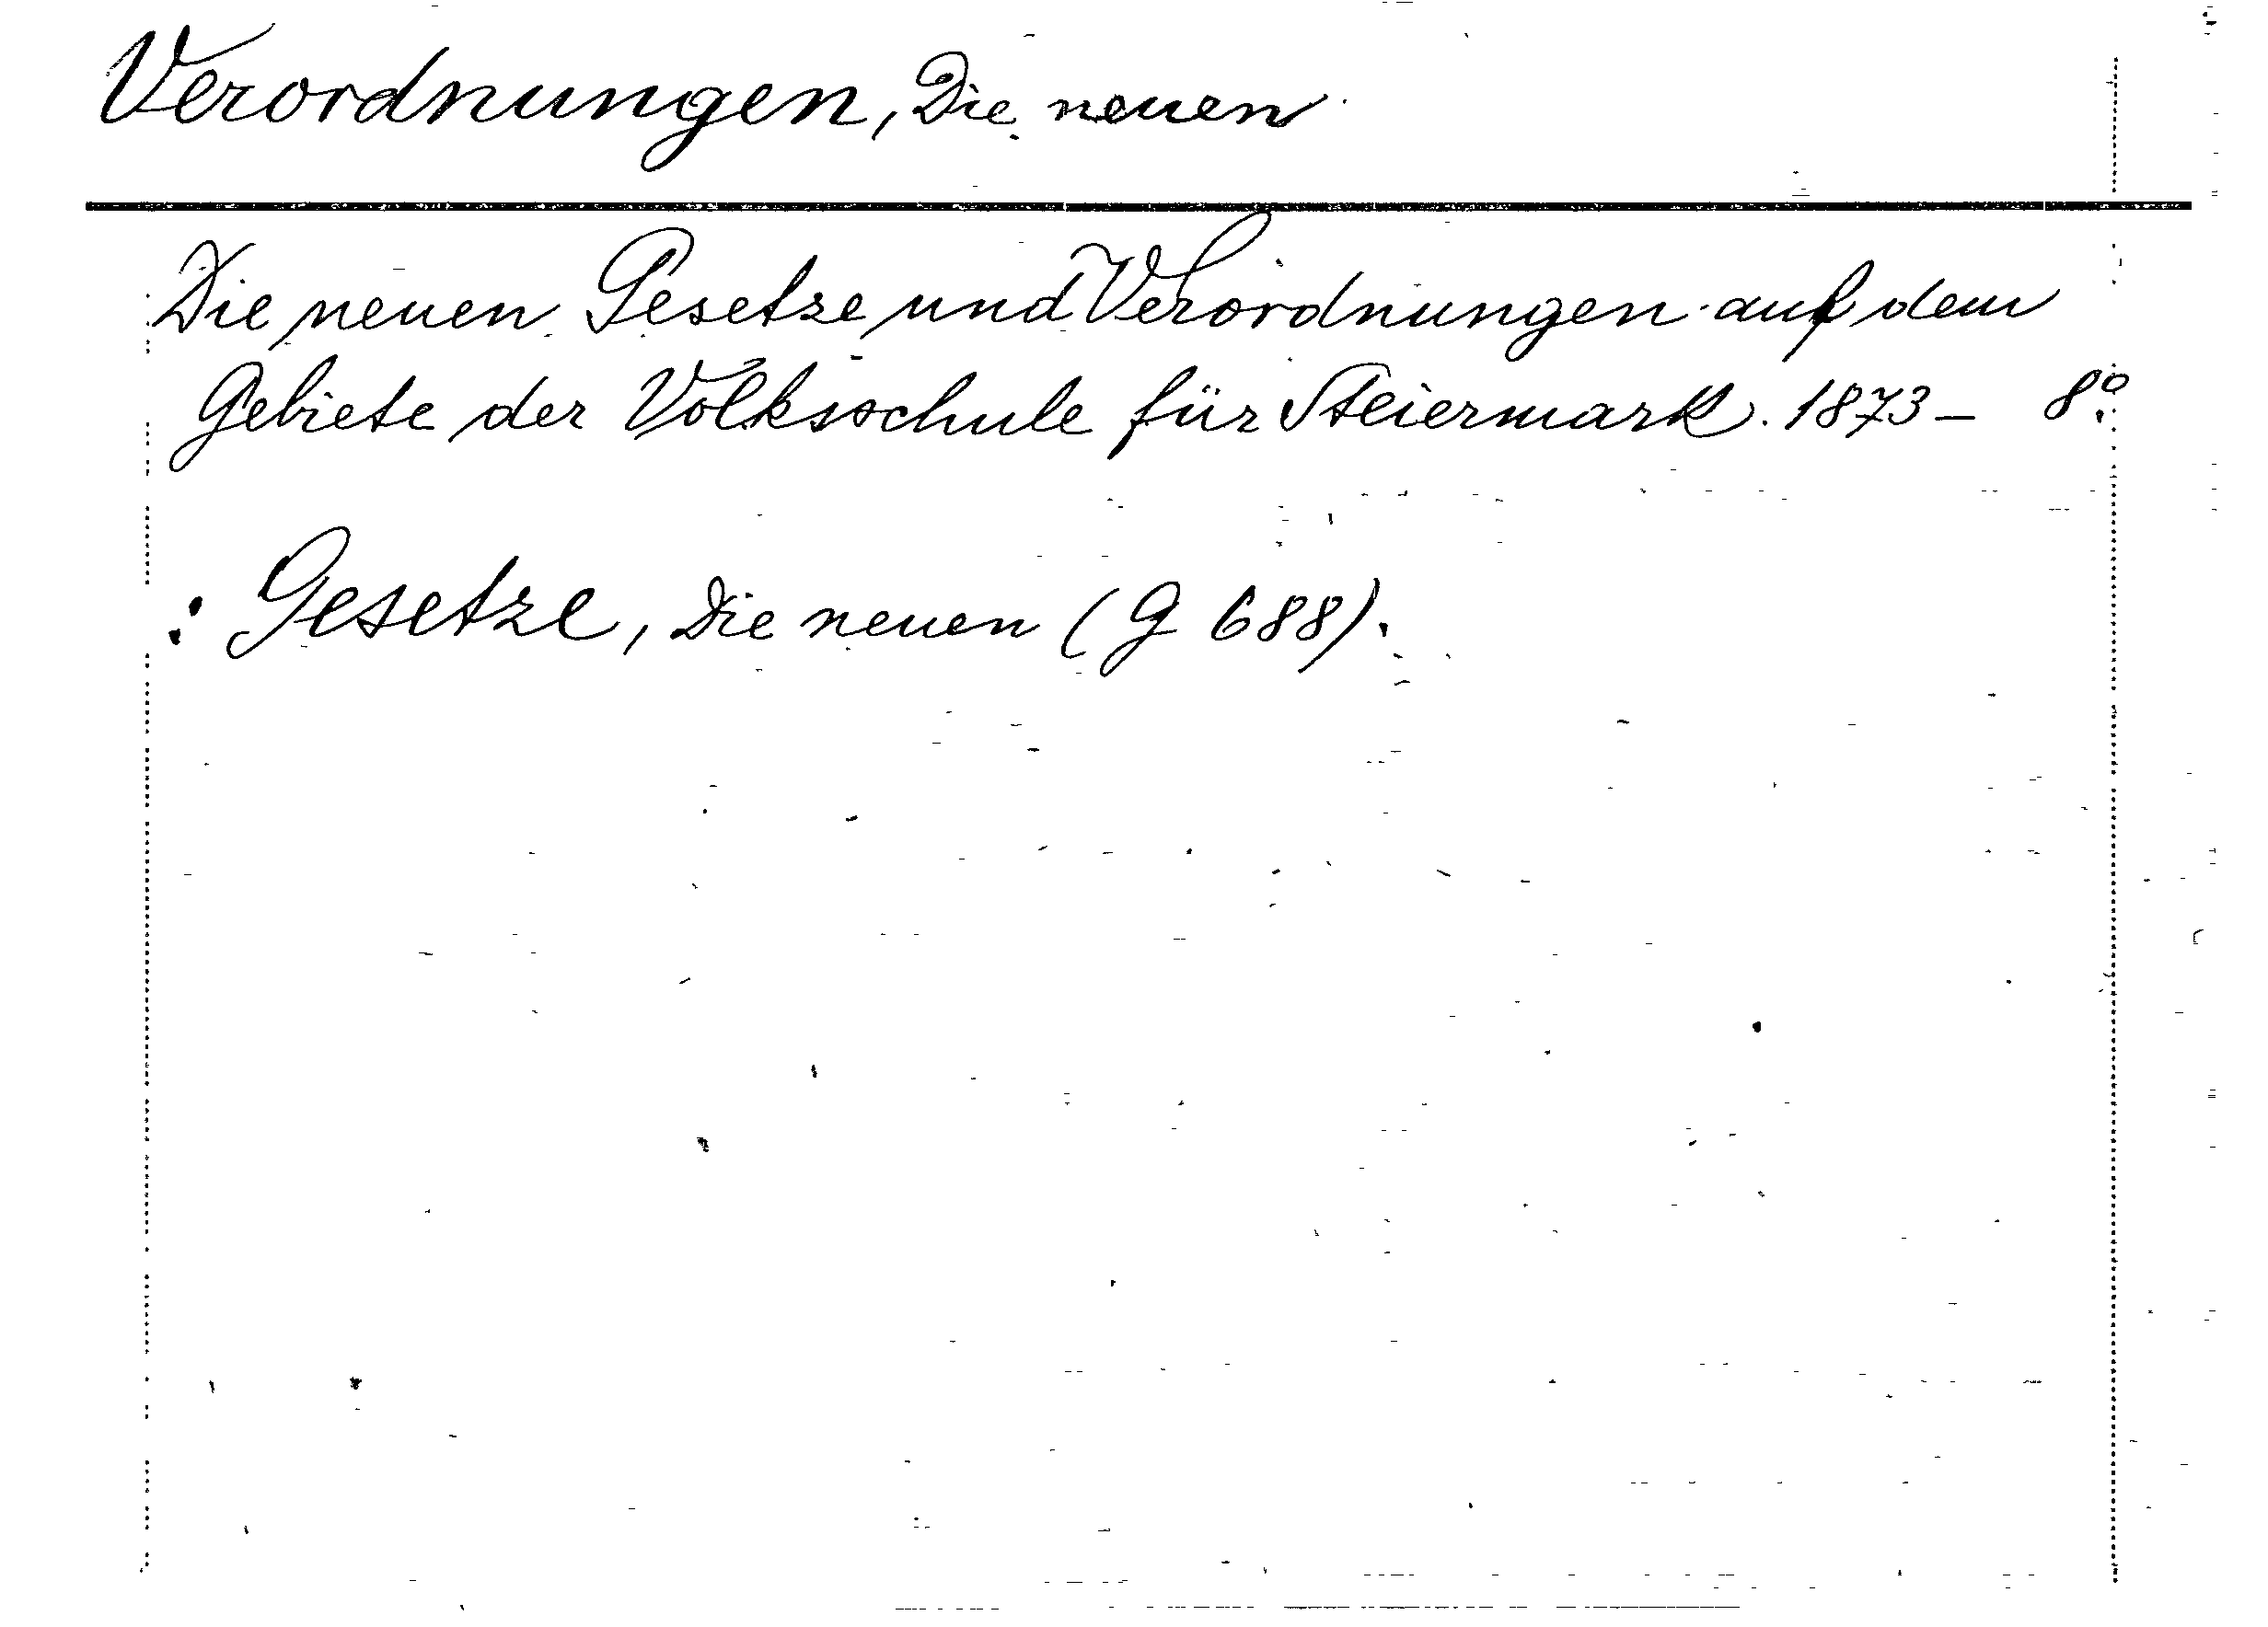 Verordnungen, Die neuen
Die neuen Gesetze und Verordnungen auf dem
Gebiete der Volksschule für Steiermark. 1873— 8°.
: Gesetze, Die neuen (G 688).